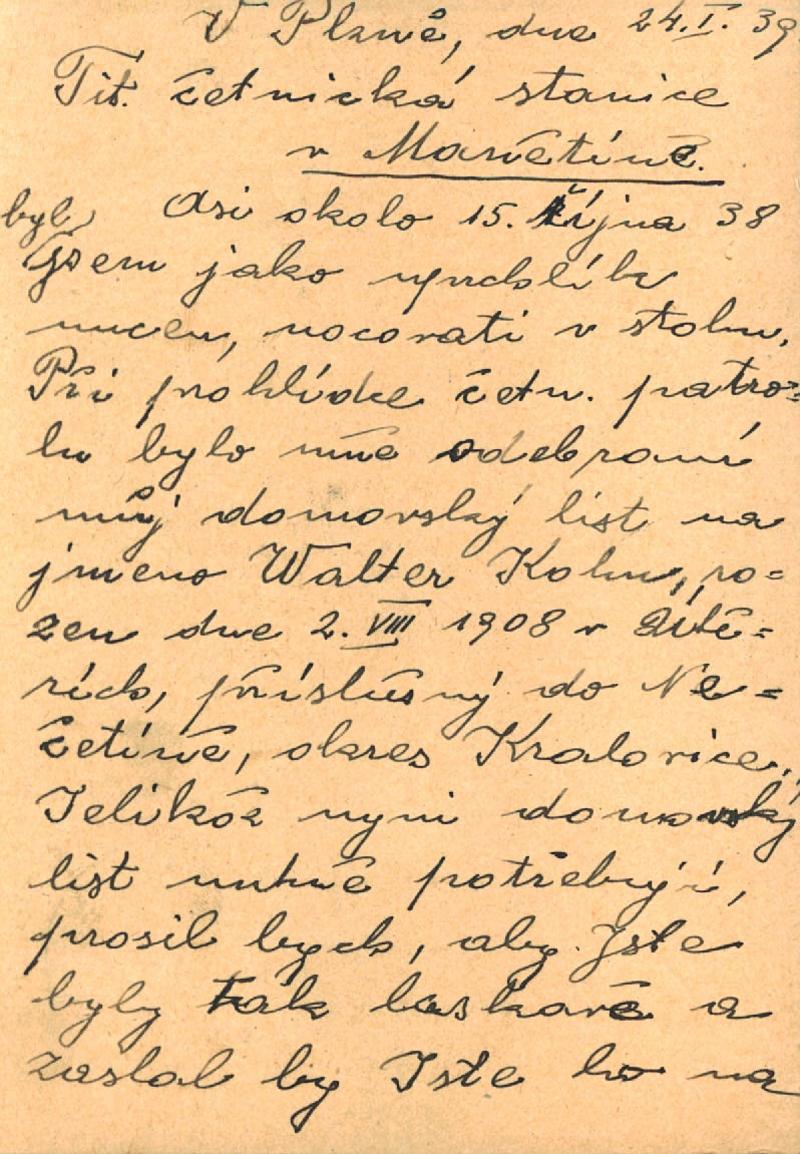 V Plané, dne 24.I. 39.
Tit. četnická stanice
v Manětíně.
Asi okolo 15. října 38
byl jsem jako uprchlík
nucen, nocovati v stohu.
Při prohlídce četn. patro=
lu bylo mně odebraní
můj domovský list na
jmeno Walter Kohn, ro=
zen dne 2. VIII 1908 v Útě=
rích, příslušný do Ne=
četíně, okres Kralovice.
Jelikož nyni domovský
list nutně potřebuji,
prosil bych, aby Jste
byly tak laskavě a
zaslal by Jste ho na